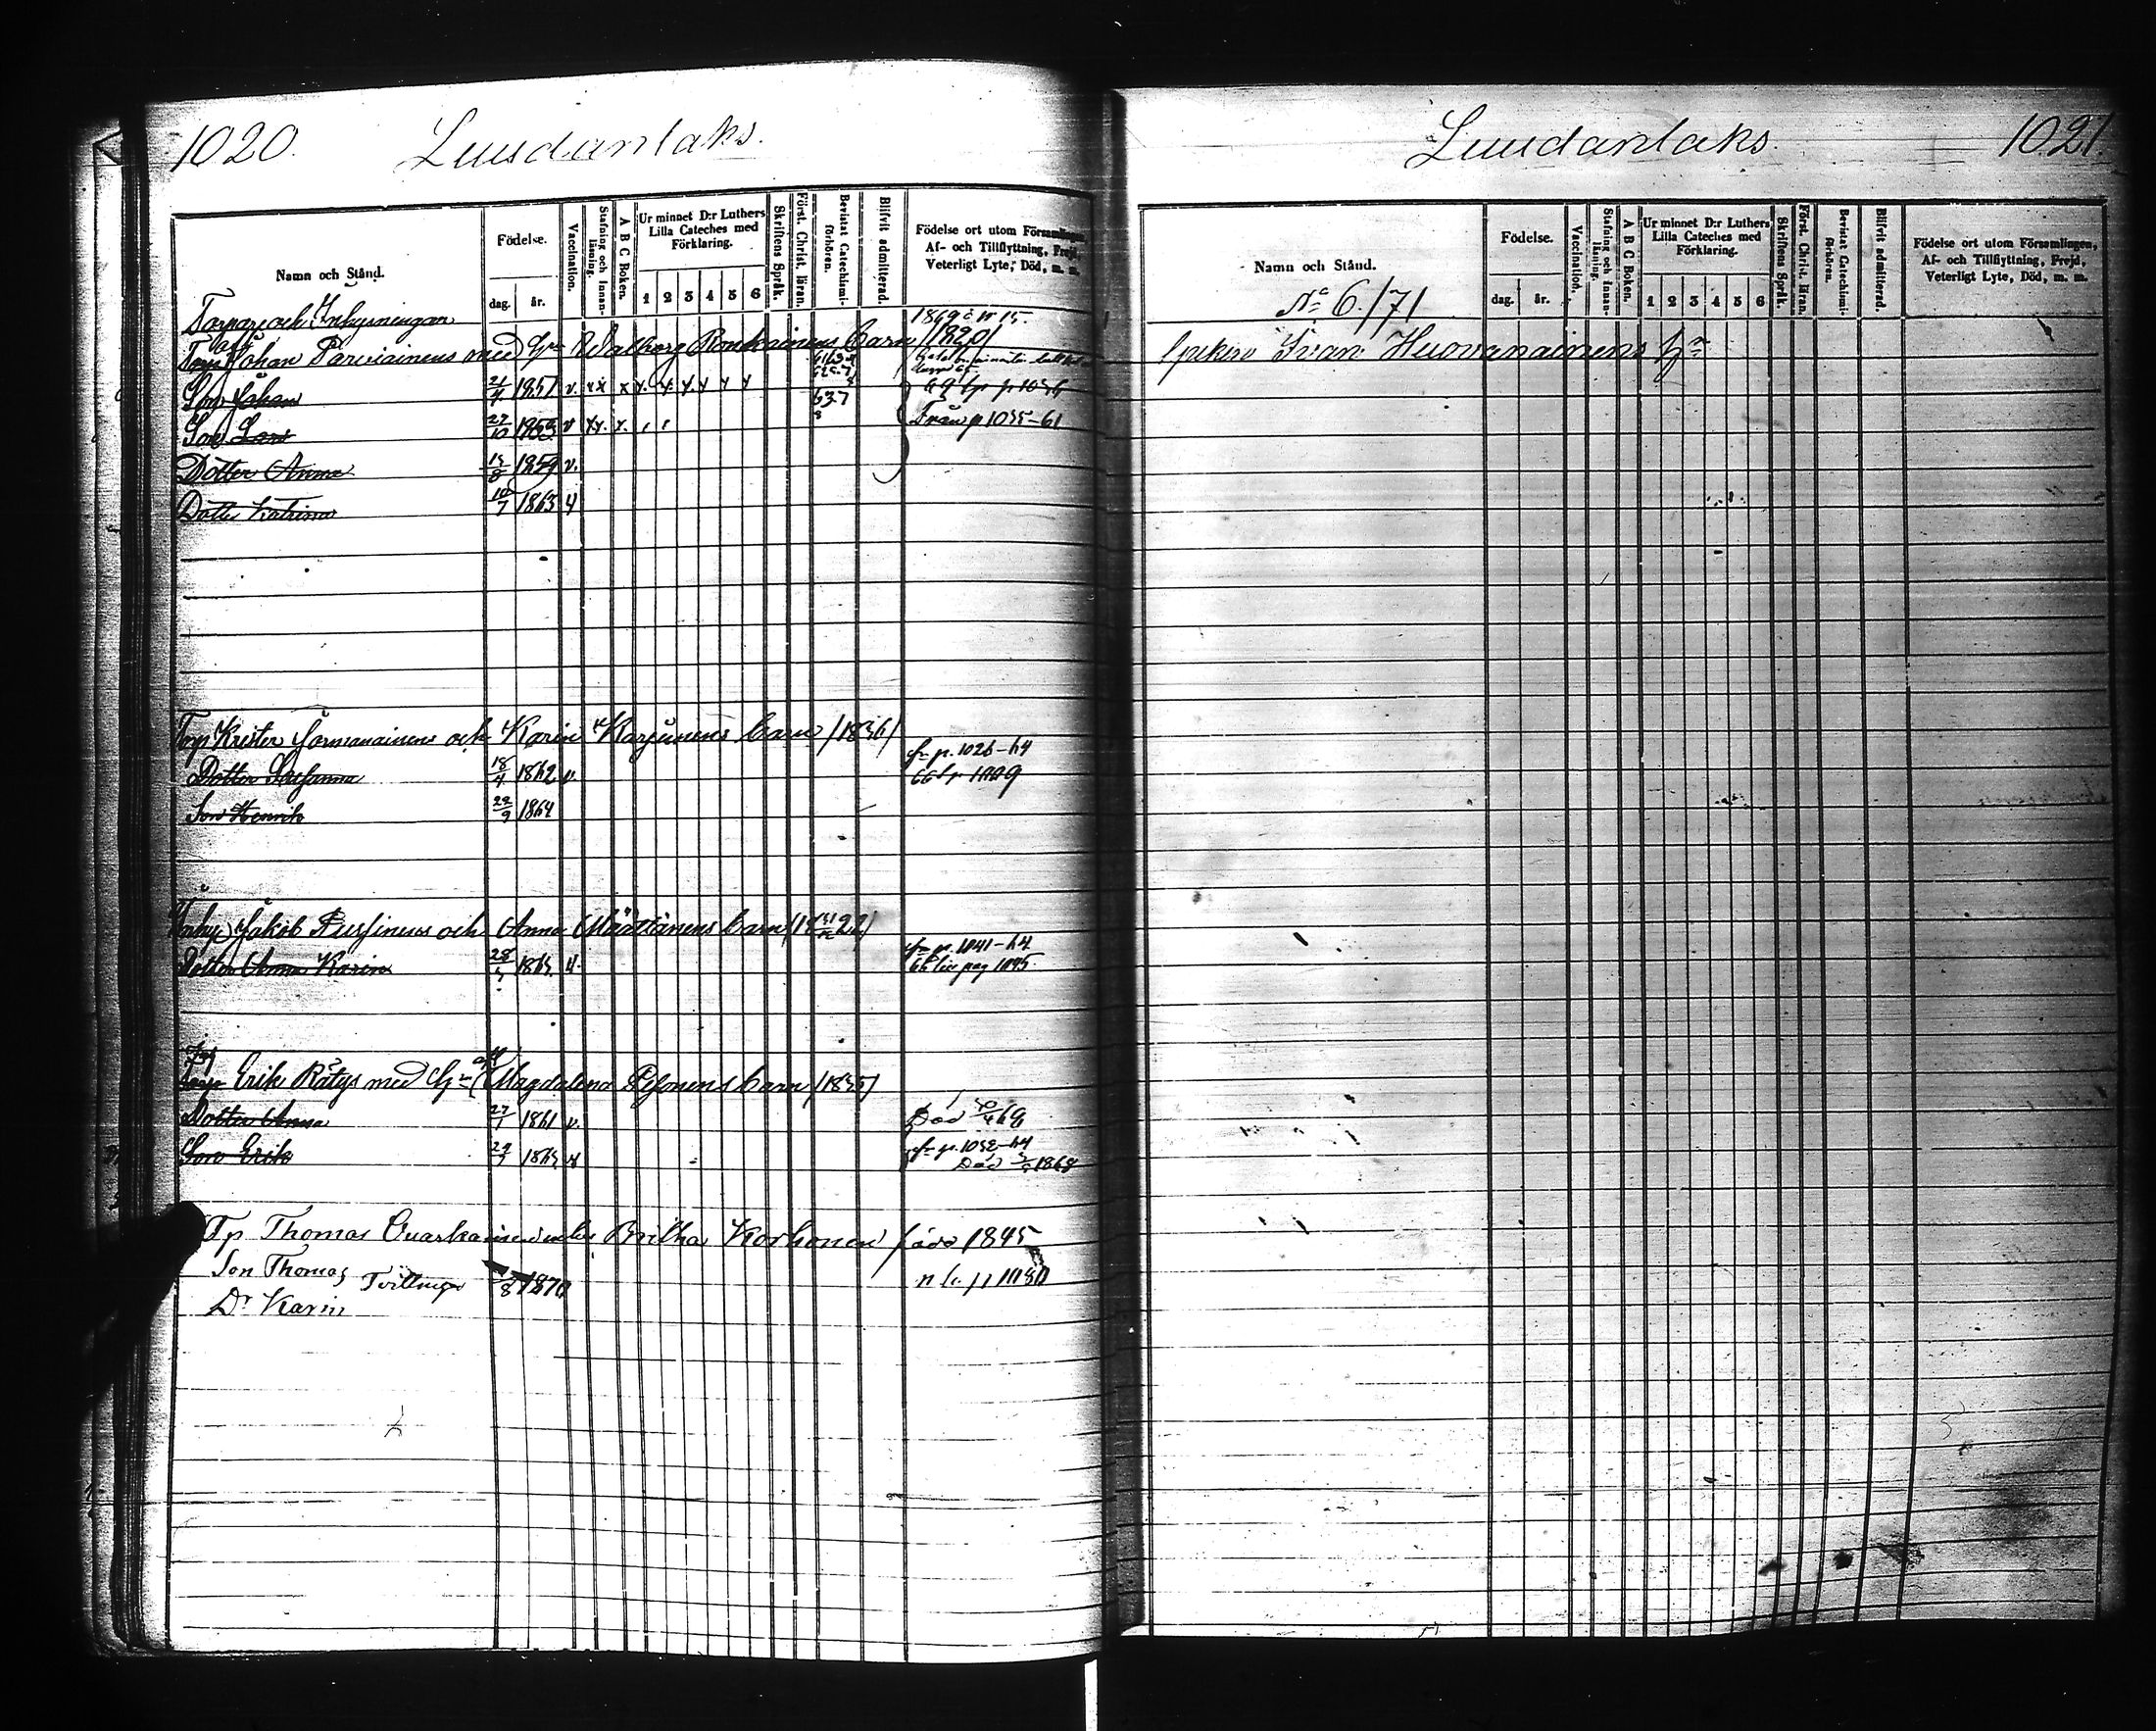 1020. Luusdanlaks.
Namn och Stånd.
Födelse.
dag. år.
Vaccination.
Stafning och Innanläsning.
A B C Boken.
Ur minnet D:r Luthers Lilla Cateches med Förklaring.
1 2 3 4 5 6
Skriftens Språk.
Först. Christ. läran.
Bevistat Catechismiförhören.
Blifvit admitterad.
Födelse ort utom Församlingen,
Af- och Tillflyttning, Frejd,
Veterligt Lyte, Död, m. m.
Torpare och Inhysningar
Johan Parviainens med Walborg Ronkainens barn /1820/
Son Johan 21/4 1851 v. 69 p 1036
Son Lars 27/10 1853 v Från p 1035-61
Dotter Anna 15/8 1859 v.
Dotter Katrina 10/7 1863
Torp Krister Jormanainens och Karin Karjunens barn /1836/
fr p. 1026-64
Dotter Susanna 18/4 1862 v.
Son Henrik 29/9 1864
Jakob Pussinens och Anna Määttänens barn
p. 1041-64
Dotter Anna Karin 28/5 1865 pag 1045
Erik Rätys med Magdalena Pesonens barn /1835/
Dotter Anna 27/1 1861 v. Död 69
Son Erik p. 1032-64
Död 1868
Tp Thomas Britha Korhonen född 1845
Son Thomas Tvillingar 8 1870
Dr Karin
Luusdanlaks. 1021.
Namn och Stånd.
Födelse.
dag. år.
Vaccination.
Stafning och Innanläsning.
A B C Boken.
Ur minnet D:r Luthers Lilla Cateches med Förklaring.
1 2 3 4 5 6
Skriftens Språk.
Först. Christ. läran.
Bevistat Catechismiförhören.
Blifvit admitterad.
Födelse ort utom Församlingen,
Af- och Tillflyttning, Frejd,
Veterligt Lyte, Död, m. m.
No 6./71
Ivan Huovanainens